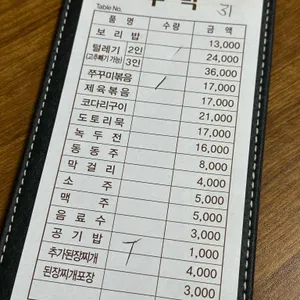 Table No. 31
품 명 수량 금 액
보 리 밥 13,000
털레기 2인 24,000
(고추빼기 가능) 3인 36,000
쭈꾸미볶음 17,000
제 육 볶 음 17,000
코다리구이 21,000
도 토 리 묵 17,000
녹 두 전 16,000
동 동 주 8,000
막 걸 리 4,000
소 주 5,000
맥 주 5,000
음 료 수 3,000
공 기 밥 1,000
추가된장찌개 4,000
된장찌개포장 3,000